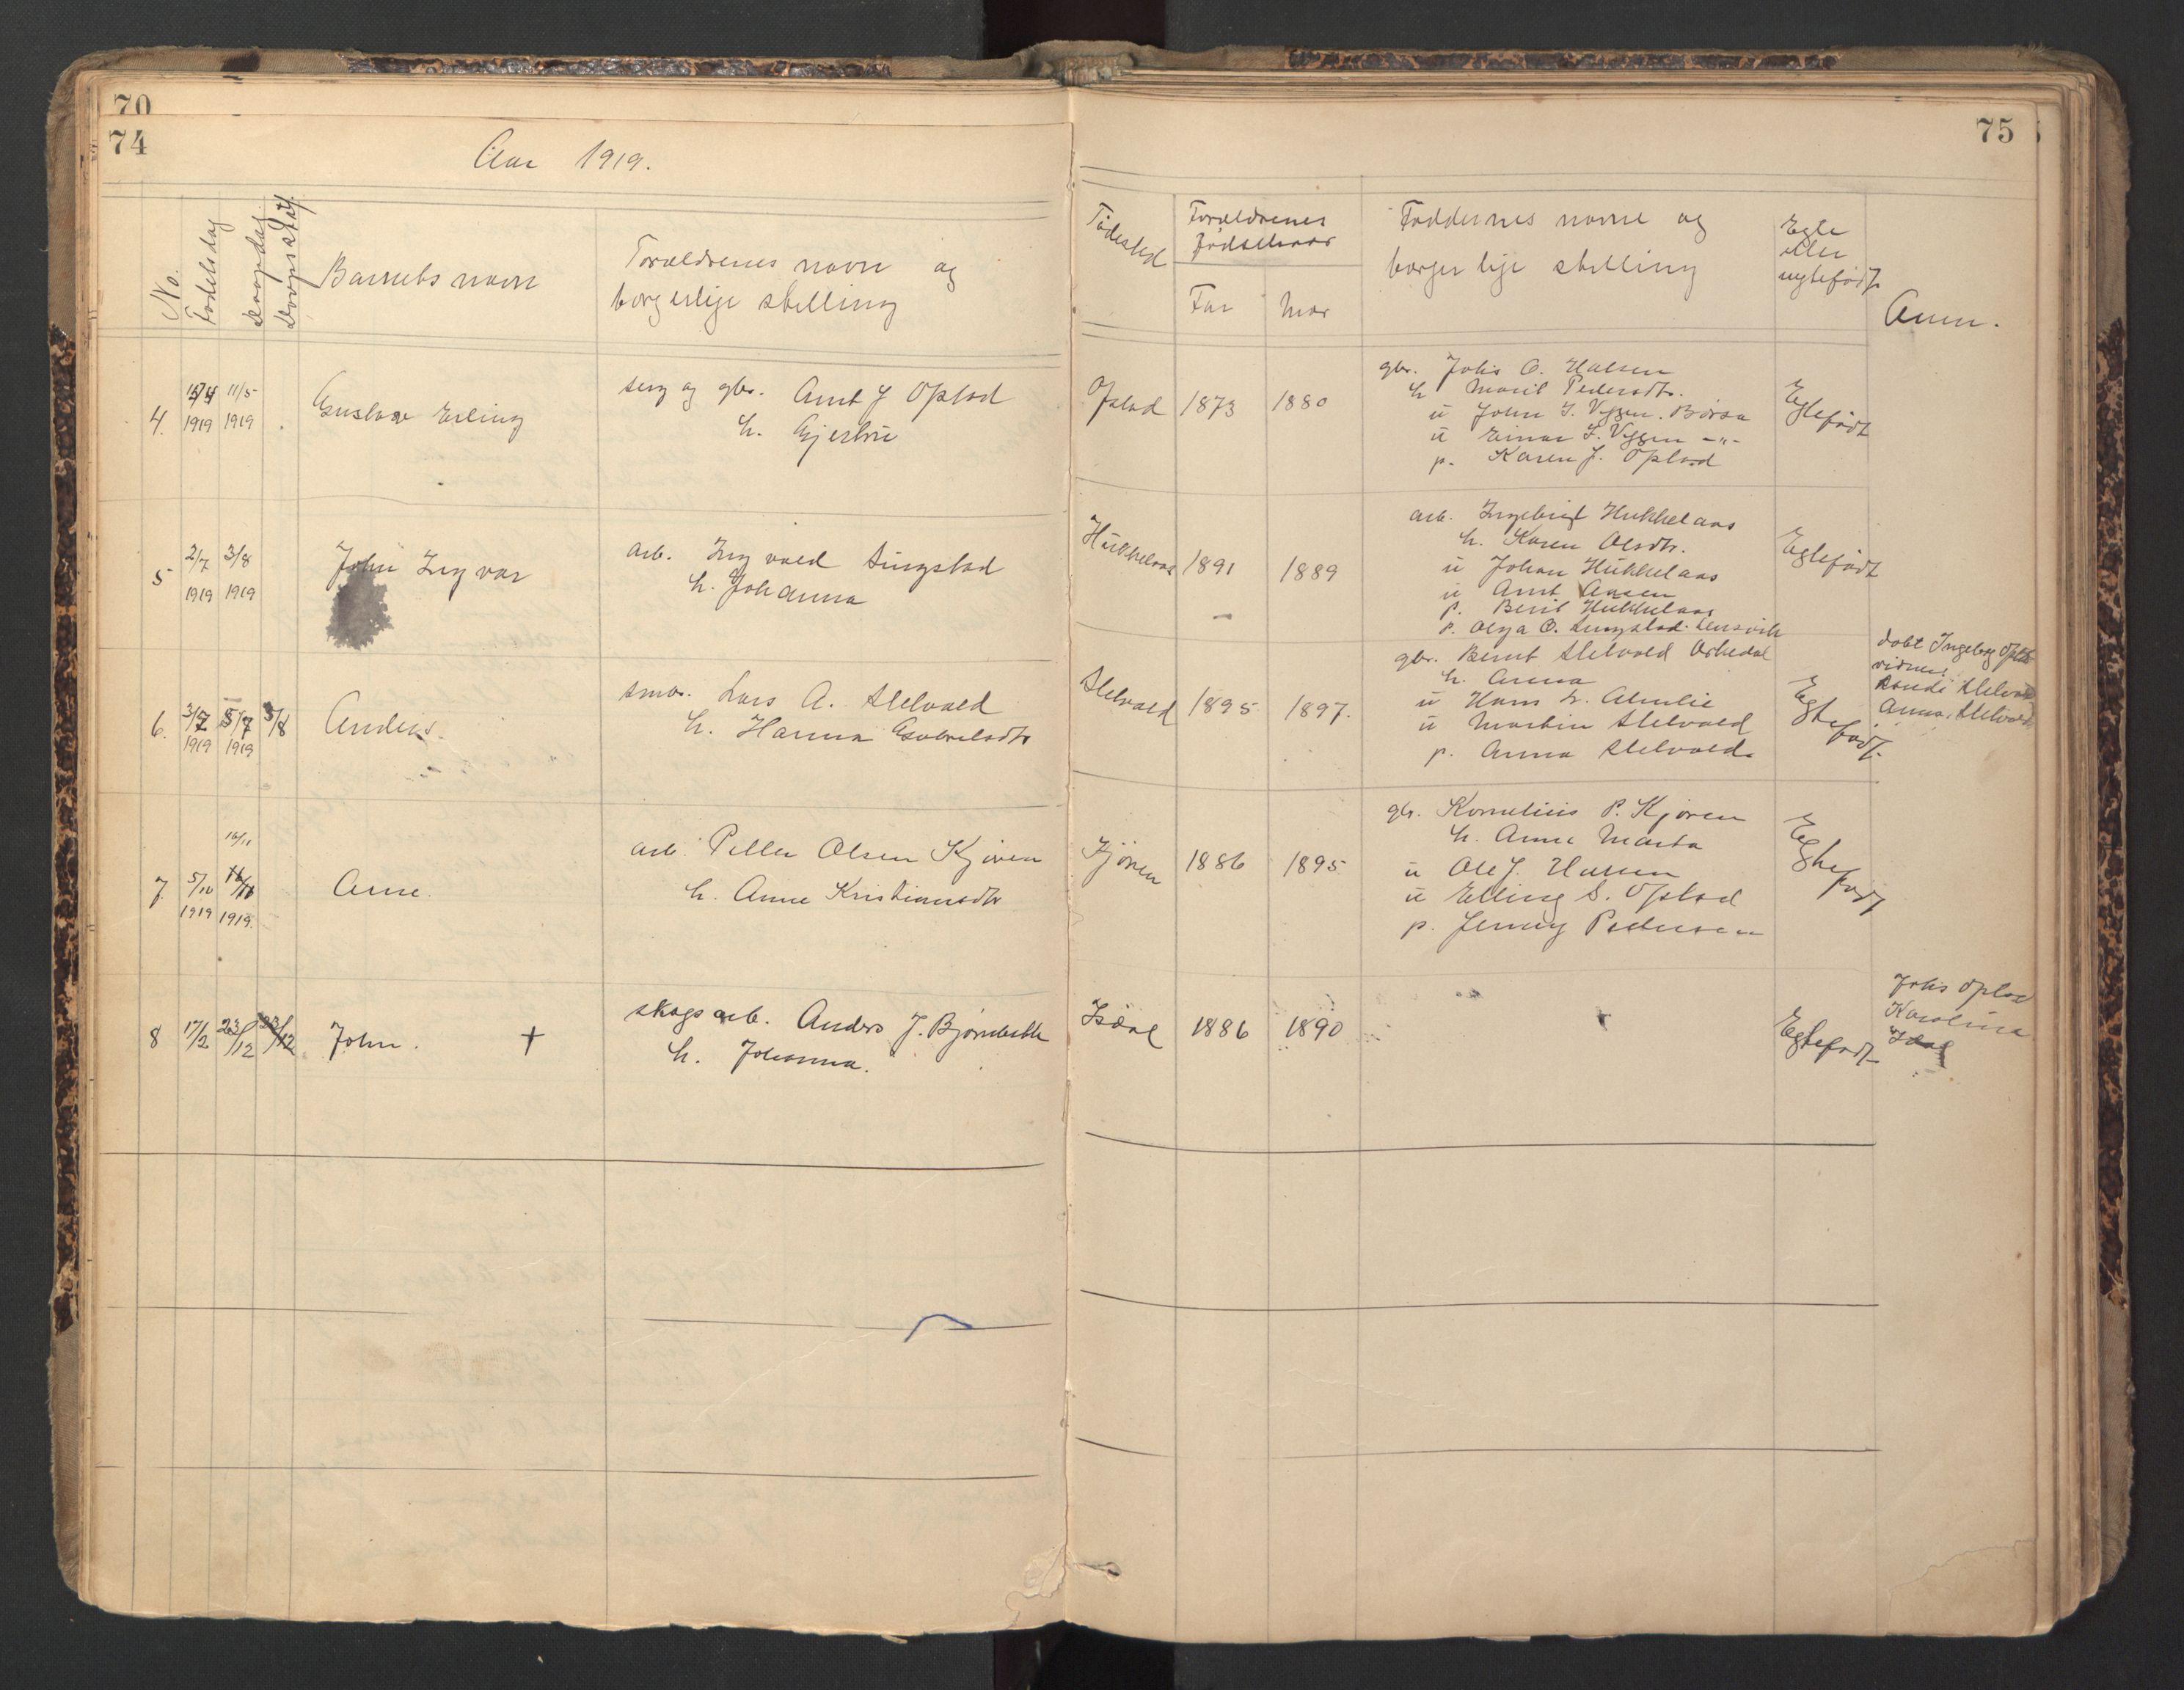 70
74
Aar 1919.
No.
Fødelsdag
Daapsdag
Daapsstad
Barnets navn
Forældrenes navn og
borgerlige stelling
4. 11/5 1919 1919 Gustav Erling
serg og gbr. Arnt J Opstad
h. Gjertru
5 2/7 1919 3/8 1919 John Ingvar
arb. Ingvald Singstad
h. Johanna
6. 3/7 1919 5/7 1919 3/8 Anders.
smbr. Lars A. Slelvold
h. Hanna Gabrielsdtr
16/11
7. 5/10 1919 16/11 1919. Arne.
arb. Petter Olsen Kjøren
h. Anne Kristiansdtr
8 17/12 23/12 23/12 John. +
skogsarb. Anders J. Bjørnbeth
h. Johanna.
75
Fødested
Forældrenes fødselsaar
Far
Mor
Faddernes navne og
borgerlige stelling
Egte
eller
uegtefødt
Anm.
Opstad 1873 1880
gbr. Johs O. Halsen
h Marit Pedersdtr.
u John I. Viggen. Børsa
u Einar I. Viggen -"-
p. Karen J. Opstad
Egtefødt
Hukkelaas 1891 1889
arb. Ingebrigt Hukkelaas
h. Karen Olsdtr.
u Johan Hukkelaas
u Arnt Aasen
p. Berit Hukkelaas
p. Olga O. Singstad. Lensvik
Egtefødt
Slelvold 1895 1897.
gbr. Bernt Slelvold Orkedal
h. Anna
u Hans L. Almlie
u Martin Slelvold
p. Anna Slelvold.
Egtefødt.
døbt Ingeborg Opstad
vidner:
Randi Slelvold
Anna Slelvold
Kjøren 1886 1895.
gbr. Kornelius P. Kjøren
h. Anne Marta
u Ole J. Halsen
u Elling S. Opstad
p. Jenny Pedersen
Egtefødt
Isdal 1886 1890
Egtefødt
Johs Opstad
Karolina
Isdal